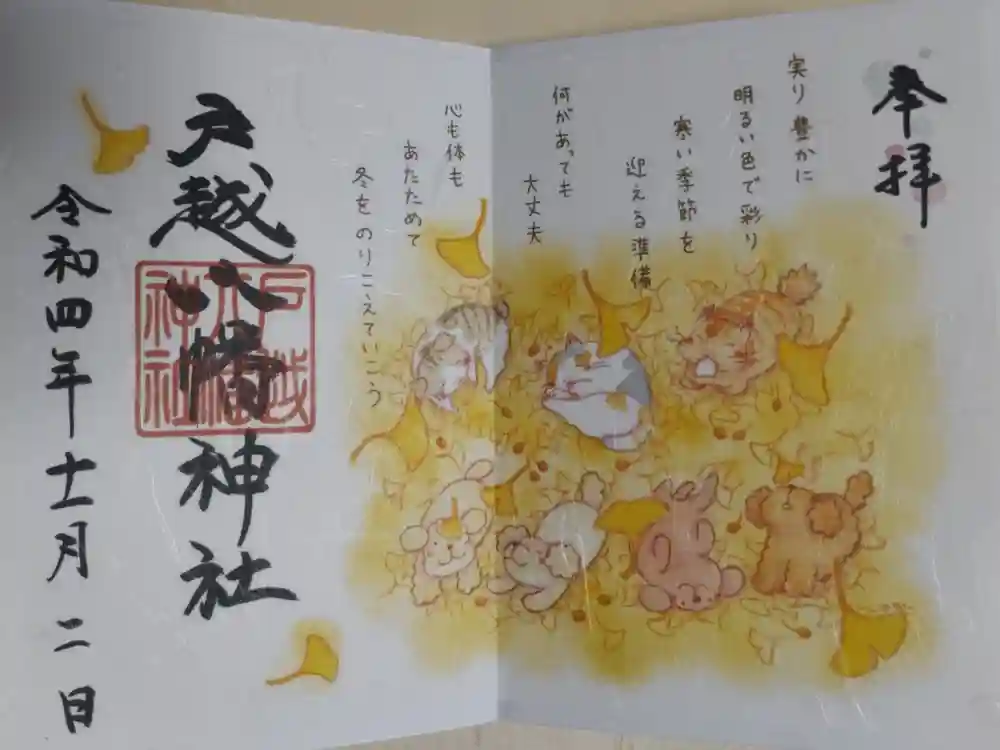 奉拝
実り豊かに
明るい色で彩り
寒い季節を
迎える準備
何があっても
大丈夫
心も体も
あたためて
冬をのりこえていこう
戸越八幡神社
戸越
八幡
神社
令和四年十一月二日